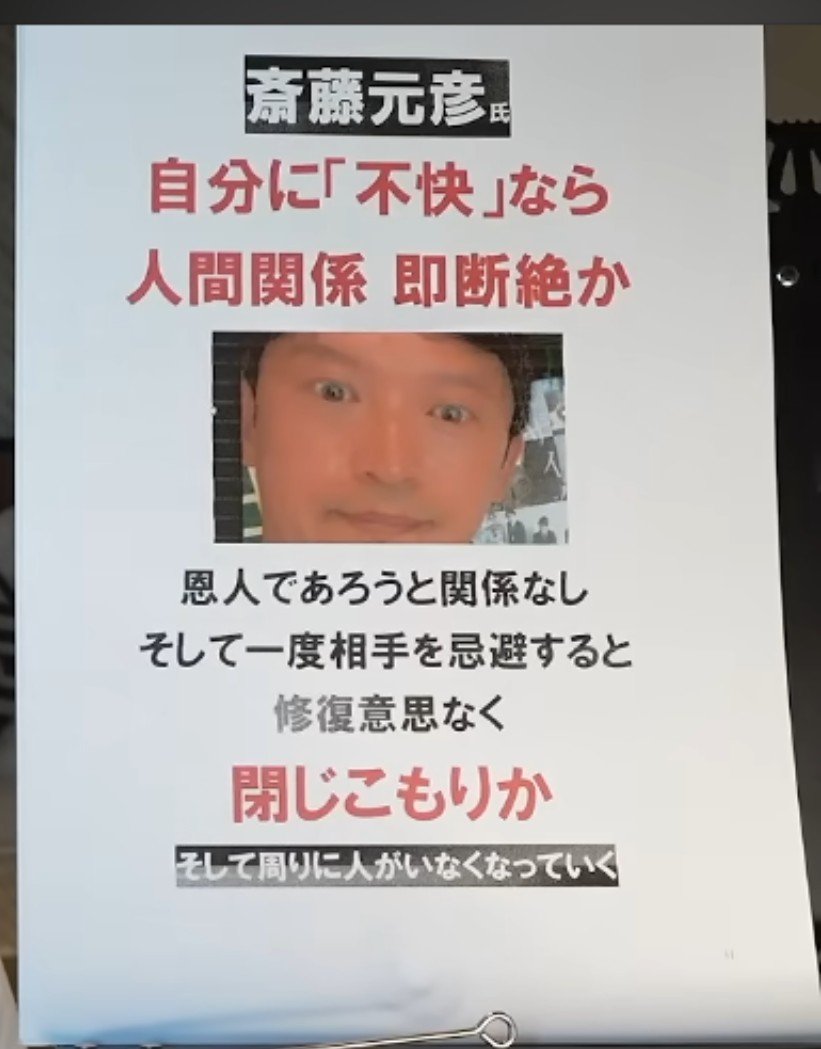 斎藤元彦氏
自分に「不快」なら
人間関係 即断絶か
人
恩人であろうと関係なし
そして一度相手を忌避すると
修復意思なく
閉じこもりか
そして周りに人がいなくなっていく